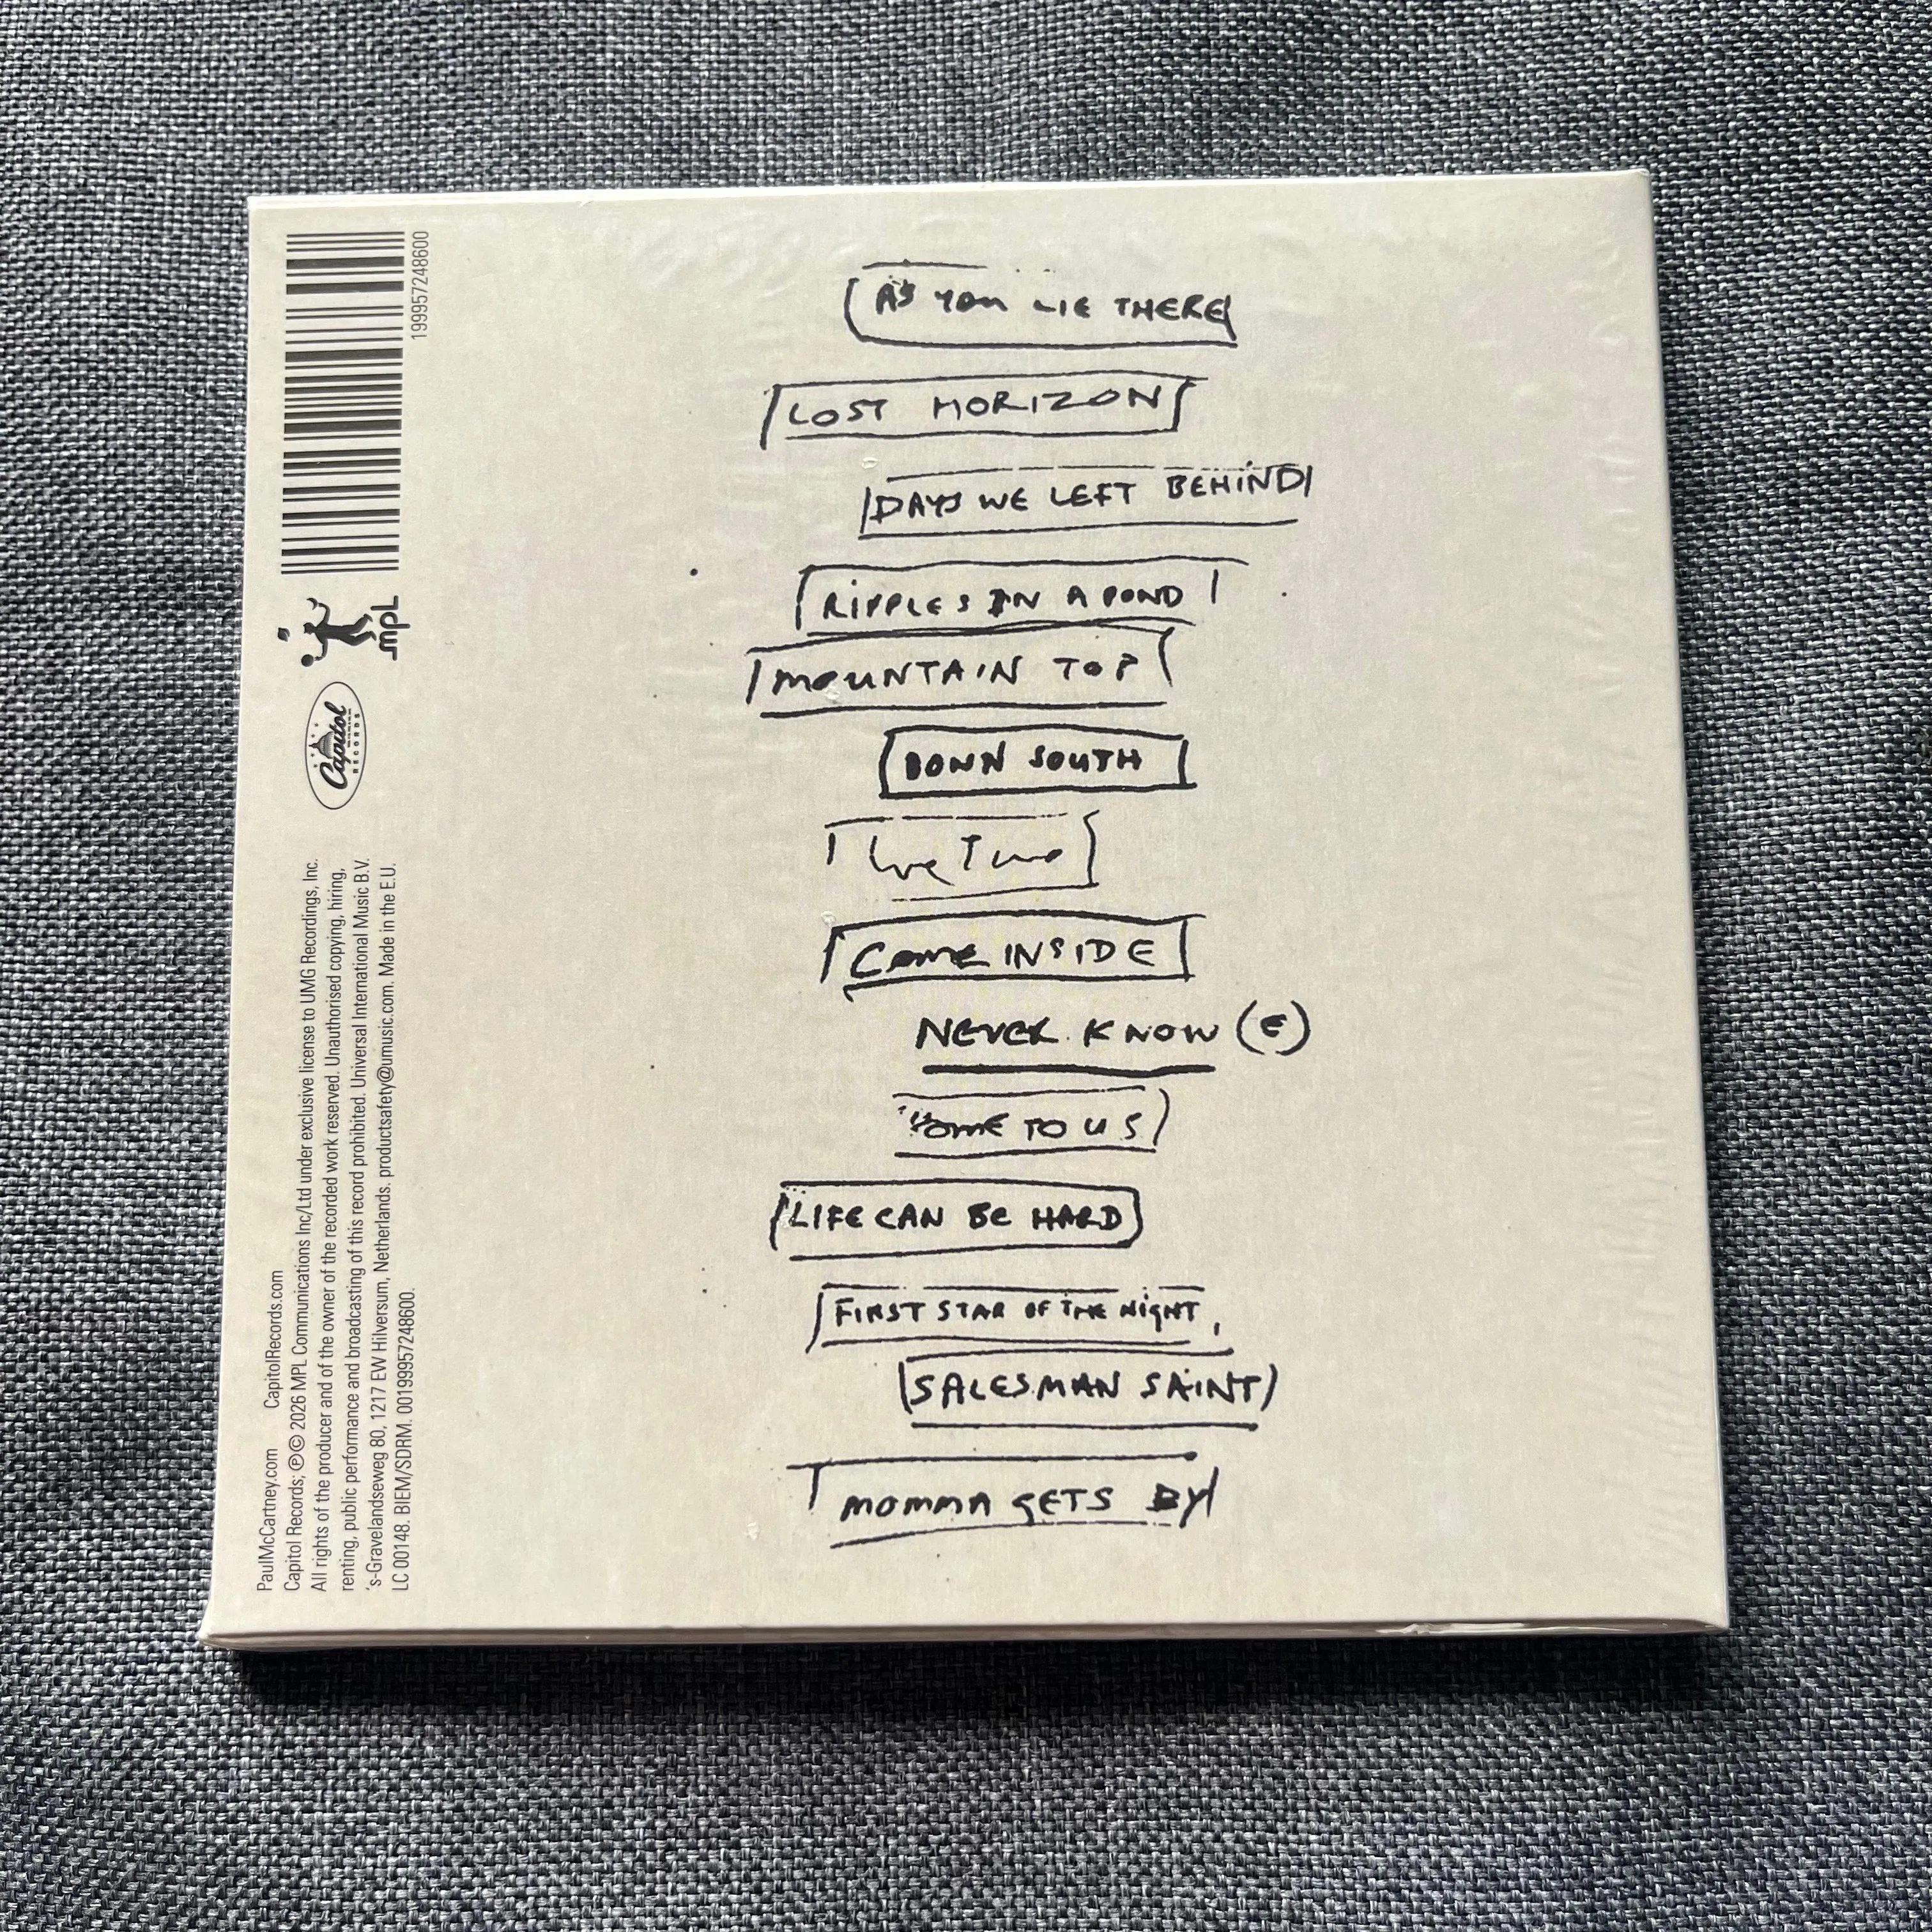 AS YOU LIE THERE
LOST HORIZON
DAYS WE LEFT BEHIND
RIPPLES IN A POND
MOUNTAIN TOP
DOWN SOUTH
We Two
COME INSIDE
NEVER KNOW (E)
HOME TO US
LIFE CAN BE HARD
FIRST STAR OF THE NIGHT
SALESMAN SAINT
MOMMA GETS BY
199957248600
mpL
Capitol
RECORDS
PaulMcCartney.com CapitolRecords.com
Capitol Records; ℗© 2026 MPL Communications Inc/Ltd under exclusive license to UMG Recordings, Inc.
All rights of the producer and of the owner of the recorded work reserved. Unauthorised copying, hiring,
renting, public performance and broadcasting of this record prohibited. Universal International Music B.V.
's-Gravelandseweg 80, 1217 EW Hilversum, Netherlands. productsafety@umusic.com. Made in the E.U.
LC 00148. BIEM/SDRM. 00199957248600.